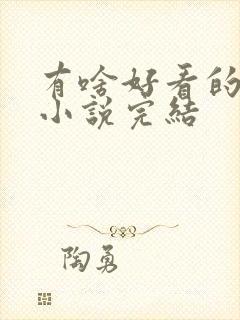 有啥好看的
小说完结
陶勇